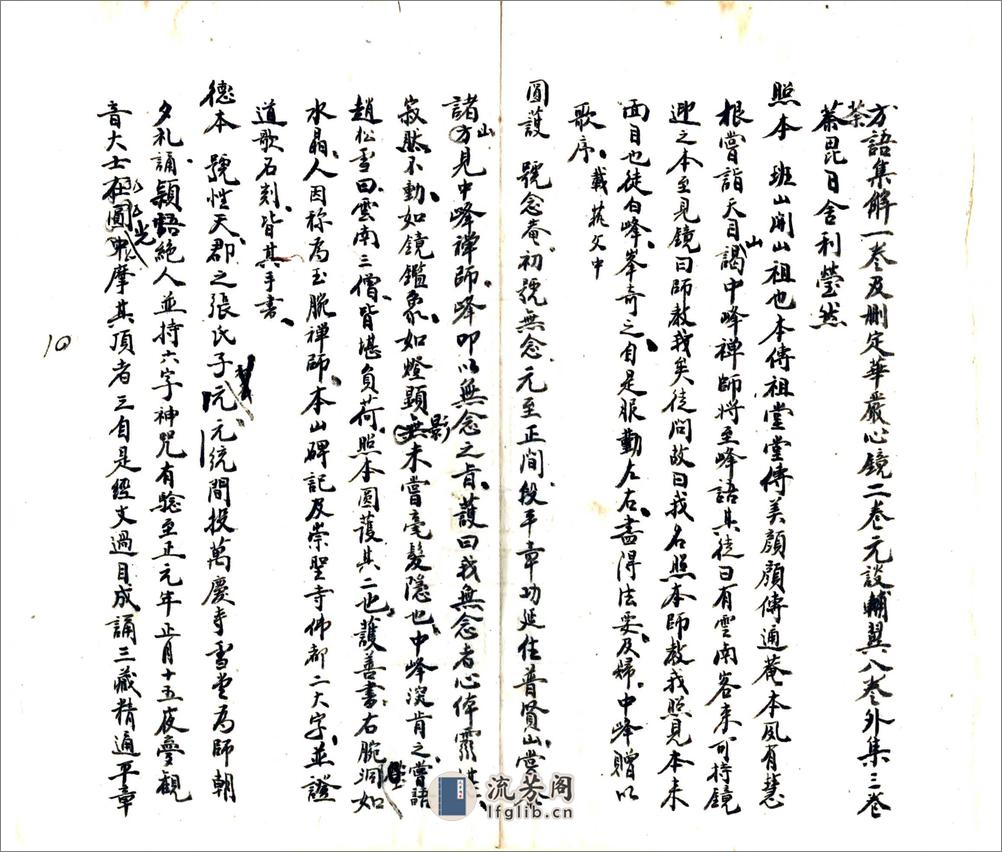 方語集解一卷及刪定華嚴心鏡二卷元談輔翼八卷外集三卷
茶毘日舍利瑩然
照本 班山開山祖也本傳祖堂堂傳美顏顏傳通菴本夙有慧
根嘗詣天目山謁中峰禪師將至峰語其徒曰有雲南客来可持鏡
迎之本至見鏡曰師教我矣徒問故曰我名照本師教我照見本来
面目也徒白峰峯奇之自是服勤左右盡得法要及歸中峰贈以
歌序載 文中
圓護 號念菴初號無念元至正間段平章功延住普賢山嘗
諸山方見中峰禪師峰叩以無念之旨護曰我無念者心体
寂然不動如鏡鑑象如燈顯影無未嘗毫髮隱也中峰深肯之嘗語
趙松雪曰雲南三僧皆堪負荷照本圓護其二也護善書右腕洞如
水晶人因称為玉腕禪師本山碑記及崇聖寺佛都二大字並證
道歌石刻皆其手書
德本 號性天郡之張氏子元元統間投萬慶寺雪堂為師朝
夕礼誦穎悟絕人並持六字神咒有騐至正元年正月十五夜夢觀
音大士在圓光中摩其頂者三自是經文過目成誦三藏精通平章
10
流芳阁
lfglib.cn